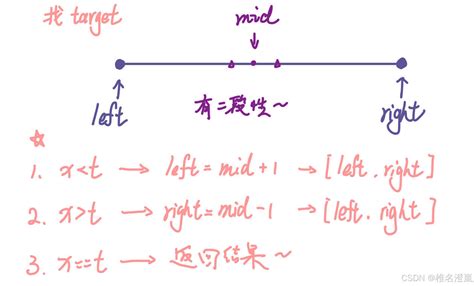 找 target
mid
left
有二段性~
right
☆
1. x<t → left = mid+1 → [left, right]
2. x>t → right = mid-1 → [left, right]
3. x==t → 返回结果~
CSDN @椎名澄嵐